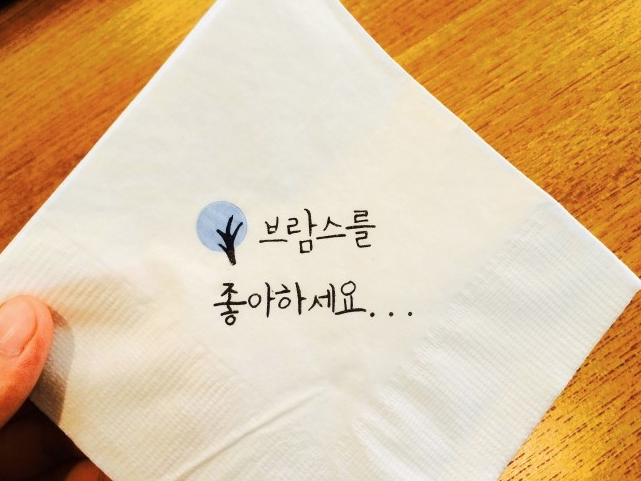 브람스를
좋아하세요...